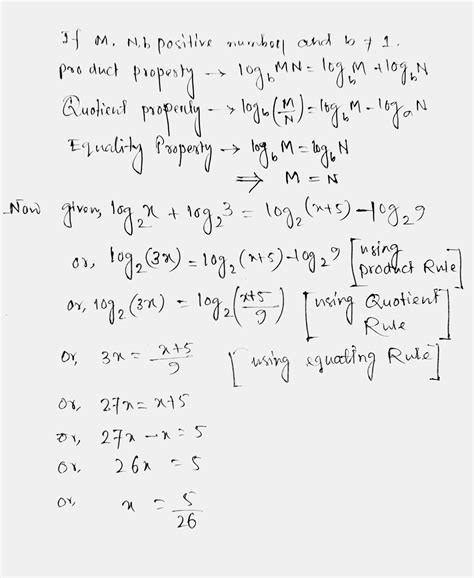 If M, N, b positive numbers and b ≠ 1.
product property → log_b MN = log_b M + log_b N
Quotient property → log_b (M/N) = log_b M - log_a N
Equality Property → log_b M = log_b N
⇒ M = N
Now given, log_2 x + log_2 3 = log_2 (x+5) - log_2 9
or, log_2 (3x) = log_2 (x+5) - log_2 9 [using product Rule]
or, log_2 (3x) = log_2 (x+5/9) [using Quotient Rule]
or, 3x = x+5/9 [using equating Rule]
or, 27x = x+5
or, 27x - x = 5
or, 26x = 5
or, x = 5/26